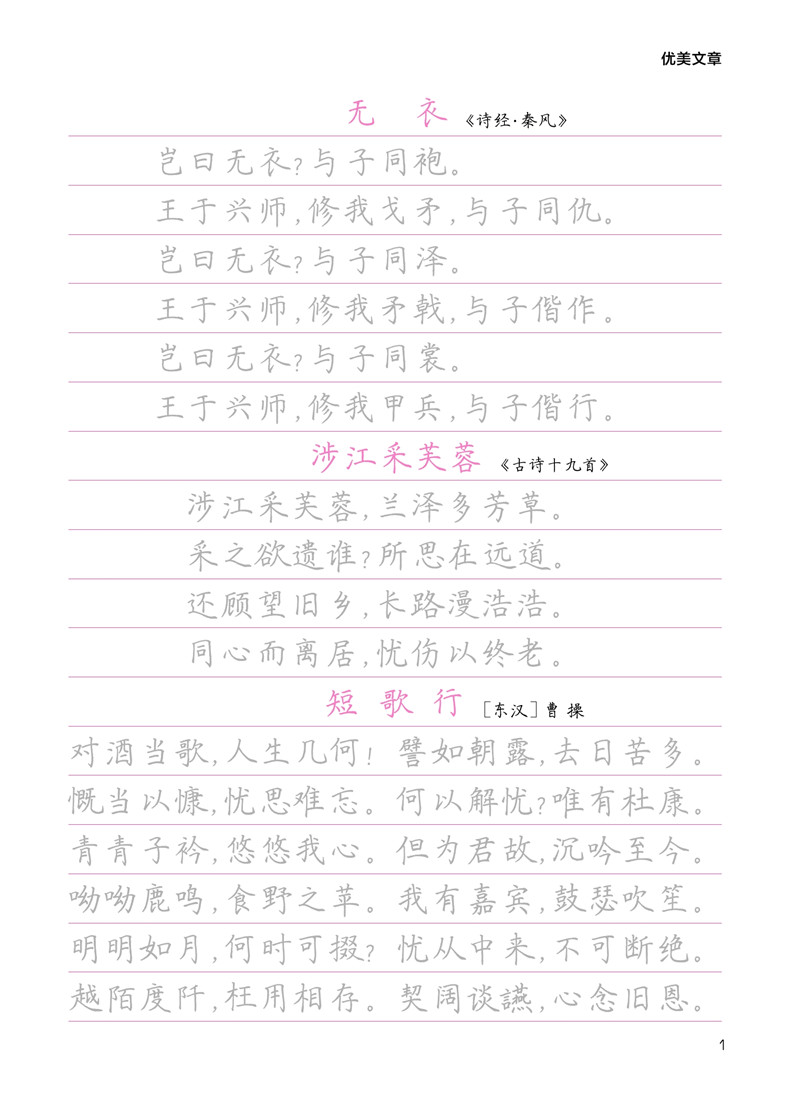 优美文章
无 衣 《诗经·秦风》
岂曰无衣?与子同袍。
王于兴师,修我戈矛,与子同仇。
岂曰无衣?与子同泽。
王于兴师,修我矛戟,与子偕作。
岂曰无衣?与子同裳。
王于兴师,修我甲兵,与子偕行。
涉江采芙蓉 《古诗十九首》
涉江采芙蓉,兰泽多芳草。
采之欲遗谁?所思在远道。
还顾望旧乡,长路漫浩浩。
同心而离居,忧伤以终老。
短歌行 [东汉]曹操
对酒当歌,人生几何! 譬如朝露,去日苦多。
慨当以慷,忧思难忘。何以解忧?唯有杜康。
青青子衿,悠悠我心。但为君故,沉吟至今。
呦呦鹿鸣,食野之苹。我有嘉宾,鼓瑟吹笙。
明明如月,何时可掇? 忧从中来,不可断绝。
越陌度阡,枉用相存。契阔谈讌,心念旧恩。
1